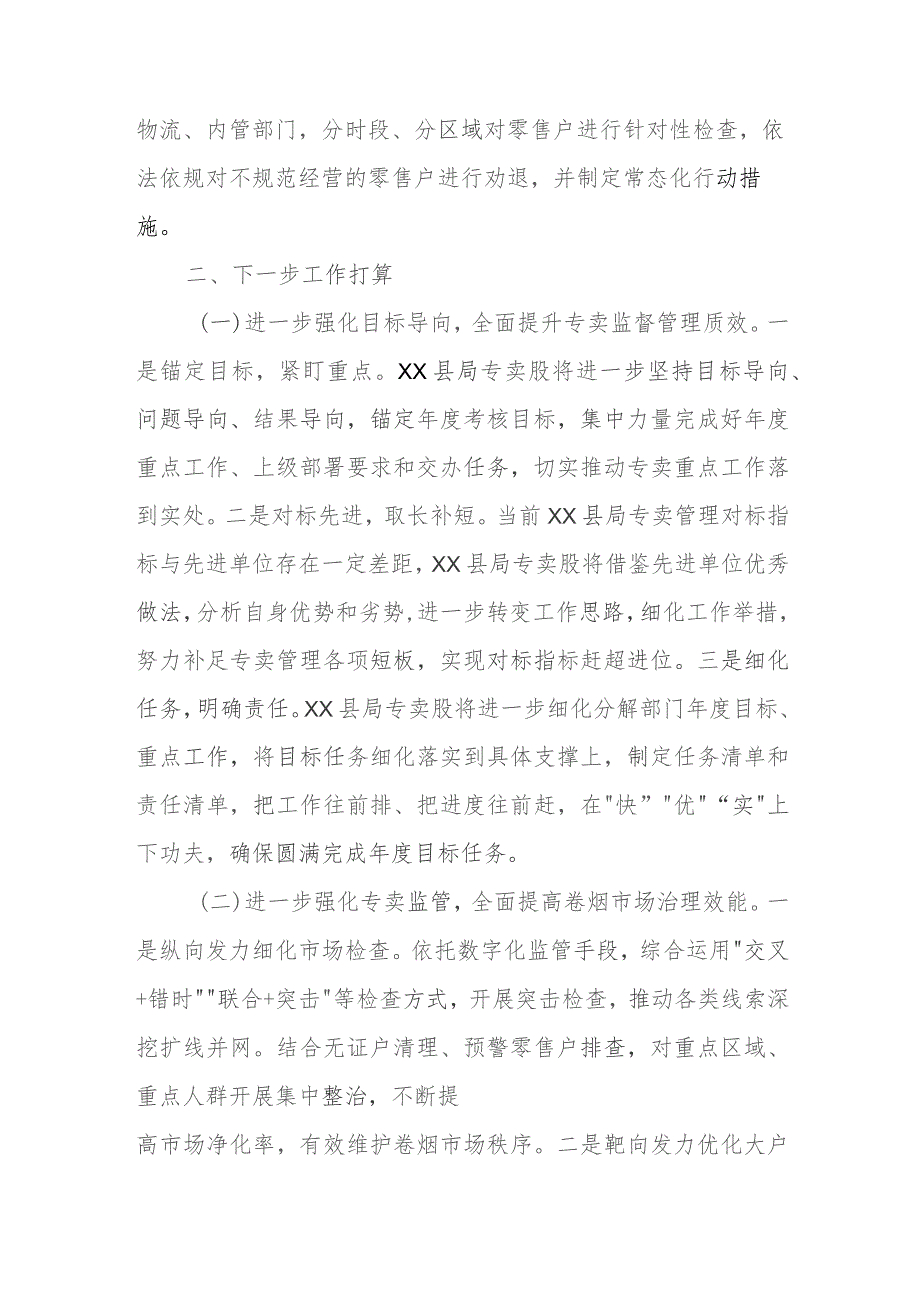 物流、内管部门，分时段、分区域对零售户进行针对性检查，依
法依规对不规范经营的零售户进行劝退，并制定常态化行动措
施。
二、下一步工作打算
(一)进一步强化目标导向，全面提升专卖监督管理质效。一
是锚定目标，紧盯重点。XX县局专卖股将进一步坚持目标导向、
问题导向、结果导向，锚定年度考核目标，集中力量完成好年度
重点工作、上级部署要求和交办任务，切实推动专卖重点工作落
到实处。二是对标先进，取长补短。当前XX县局专卖管理对标指
标与先进单位存在一定差距，XX县局专卖股将借鉴先进单位优秀
做法，分析自身优势和劣势,进一步转变工作思路，细化工作举措，
努力补足专卖管理各项短板，实现对标指标赶超进位。三是细化
任务，明确责任。XX县局专卖股将进一步细化分解部门年度目标、
重点工作，将目标任务细化落实到具体支撑上，制定任务清单和
责任清单，把工作往前排、把进度往前赶，在"快”"优"“实"上
下功夫，确保圆满完成年度目标任务。
(二)进一步强化专卖监管，全面提高卷烟市场治理效能。一
是纵向发力细化市场检查。依托数字化监管手段，综合运用"交叉
+错时""联合+突击"等检查方式，开展突击检查，推动各类线索深
挖扩线并网。结合无证户清理、预警零售户排查，对重点区域、
重点人群开展集中整治，不断提
高市场净化率，有效维护卷烟市场秩序。二是靶向发力优化大户